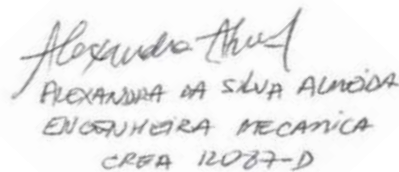 Alexandra
ALEXANDRA DA SILVA ALMEIDA
ENGENHEIRA MECANICA
CREA 12087-D